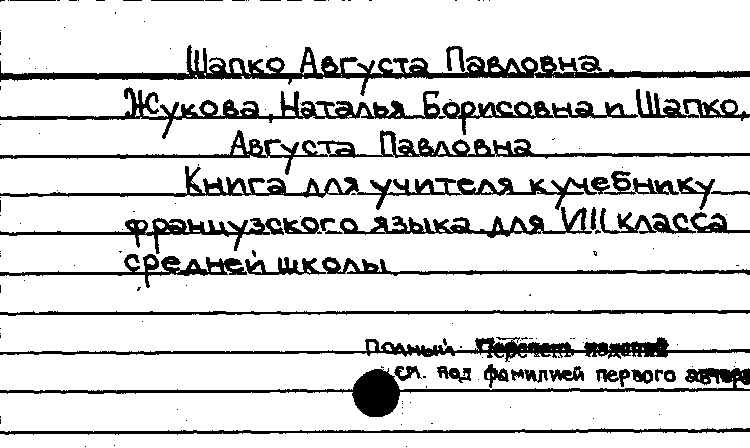 Шапко, Августа Павловна.
Жукова, Наталья Борисовна и Шапко,
Августа Павловна
Книга для учителя к учебнику
французского языка для VIII класса
средней школы
Полный Перечень изданий
см. под фамилией первого автора